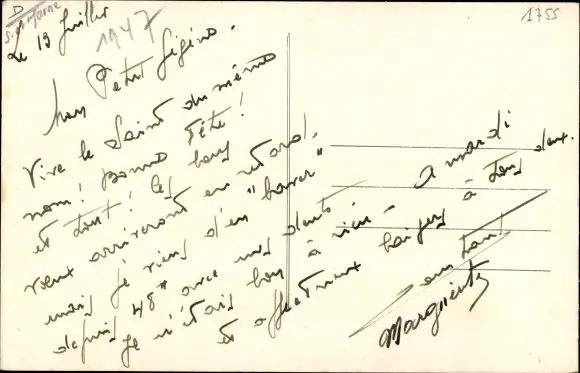 D
S. et Marne
1755
Le 13 Juillet
1947
Mon Petit Gégène.
Vive le Saint du même
nom! Bonne Fête!
et tout! Ces bons
vœux arriveront en retard.
mais je viens d'en "baver"
depuis 48h avec mes dents.
Je n'étais bon à rien - A mardi
et affectueux baisers à tous deux.
Marguerite